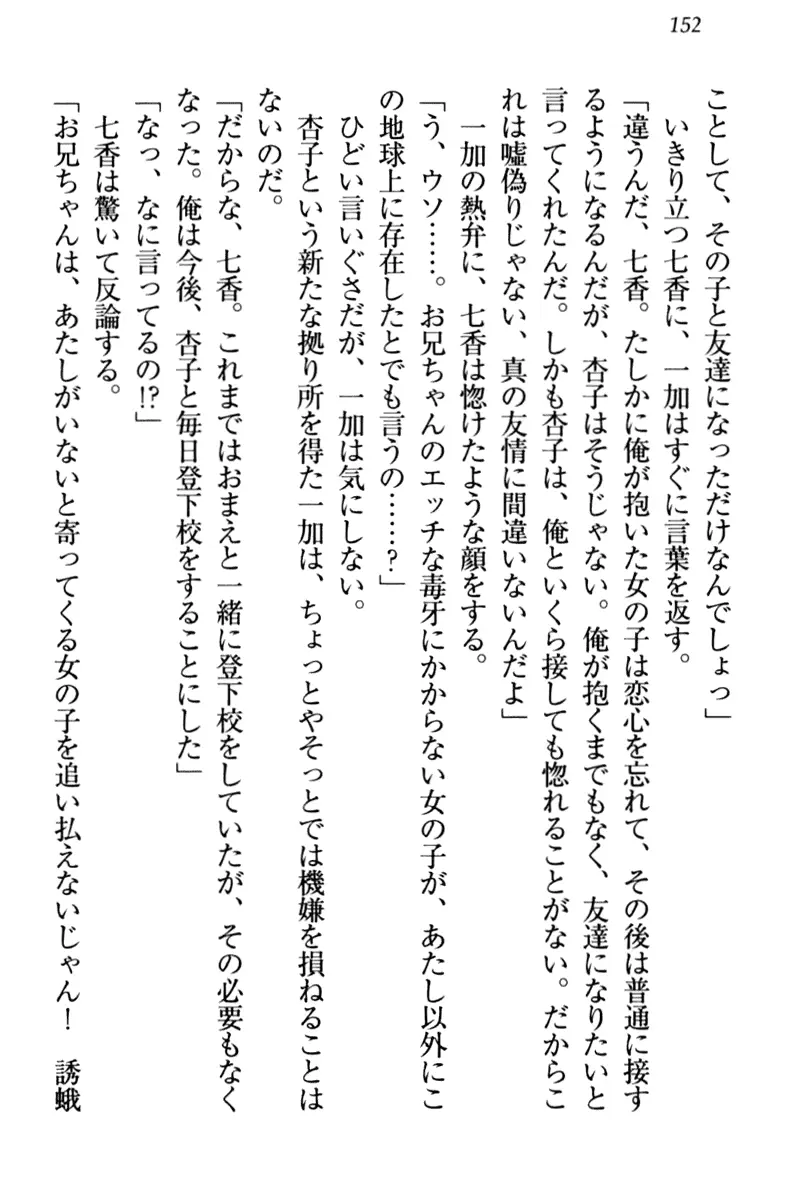 152
ことして、その子と友達になっただけなんでしょっ」
いきり立つ七香に、一加はすぐに言葉を返す。
「違うんだ、七香。たしかに俺が抱いた女の子は恋心を忘れて、その後は普通に接す
るようになるんだが、杏子はそうじゃない。俺が抱くまでもなく、友達になりたいと
言ってくれたんだ。しかも杏子は、俺といくら接しても惚れることがない。だからこ
れは嘘偽りじゃない、真の友情に間違いないんだよ」
一加の熱弁に、七香は惚けたような顔をする。
「う、ウソ……。お兄ちゃんのエッチな毒牙にかからない女の子が、あたし以外にこ
の地球上に存在したとでも言うの……?」
ひどい言いぐさだが、一加は気にしない。
杏子という新たな拠り所を得た一加は、ちょっとやそっとでは機嫌を損ねることは
ないのだ。
「だからな、七香。これまではおまえと一緒に登下校をしていたが、その必要もなく
なった。俺は今後、杏子と毎日登下校をすることにした」
「なっ、なに言ってるの!?」
七香は驚いて反論する。
「お兄ちゃんは、あたしがいないと寄ってくる女の子を追い払えないじゃん! 誘蛾